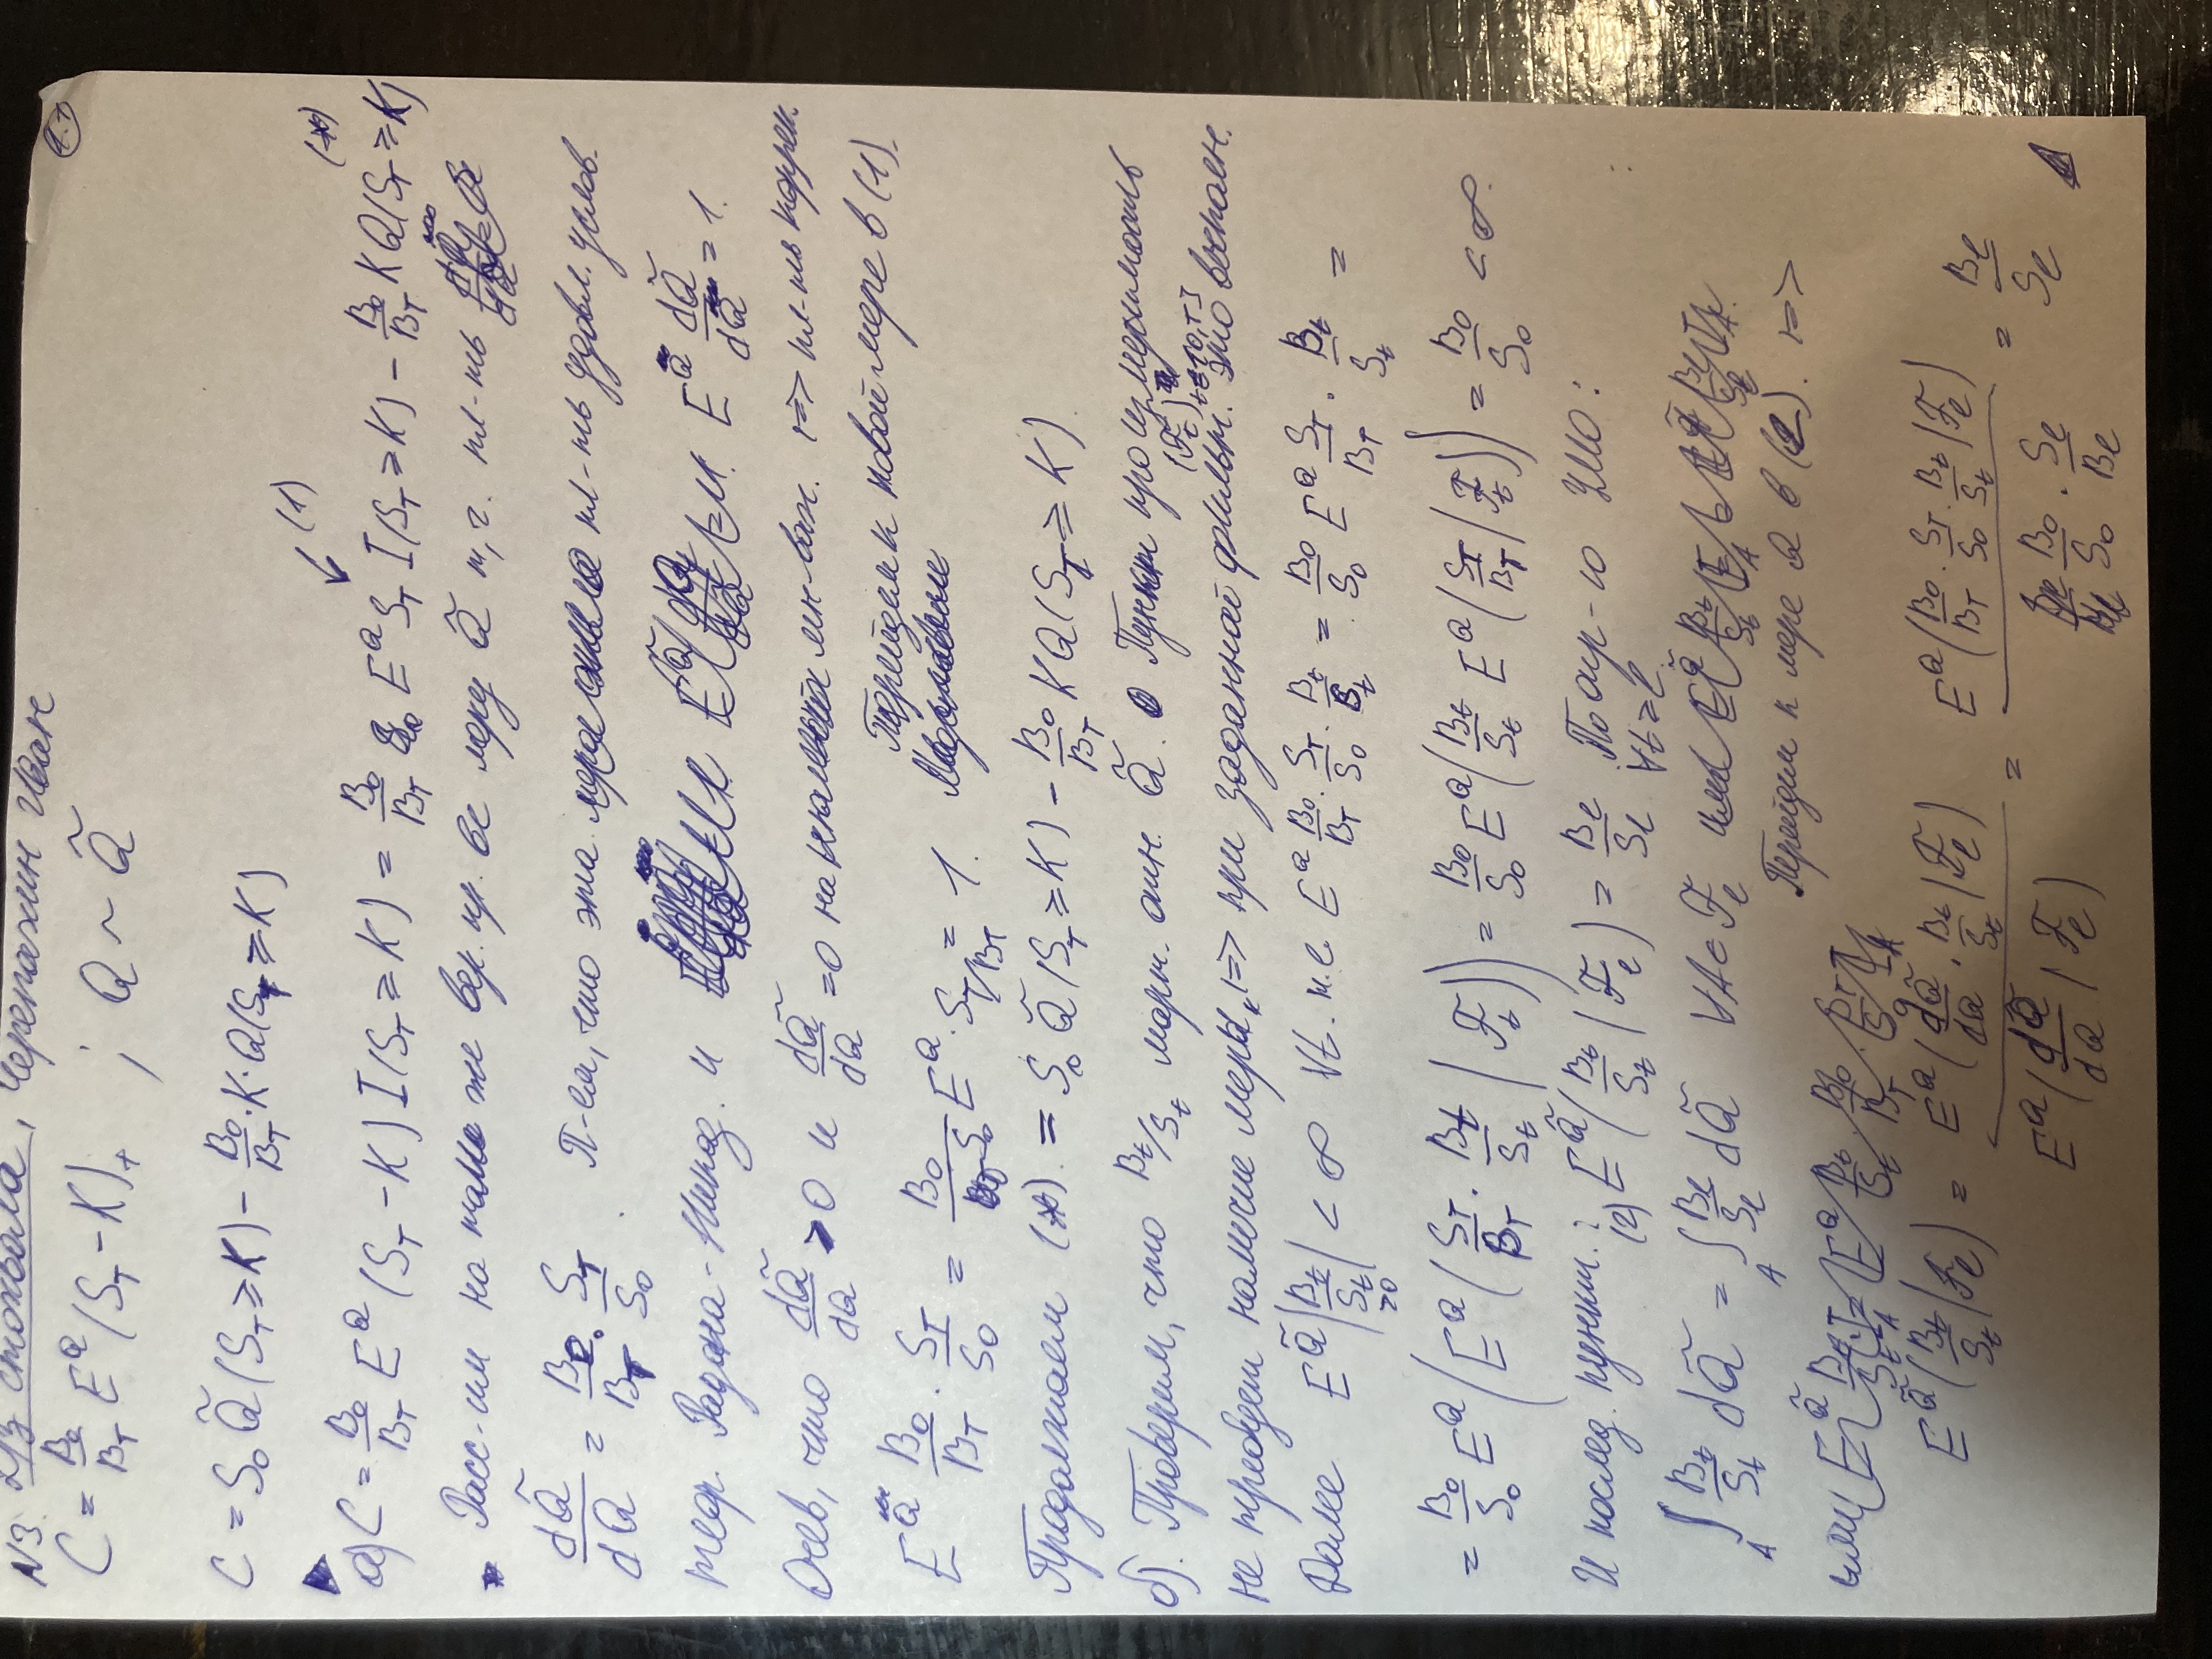 N3. ДЗ стохвола, Черепахин Иван
1.1
C = B₀/B_T E^Q (S_T − K)₊ ; Q ~ Q̃
C = S₀ Q̃(S_T ≥ K) − B₀/B_T · K · Q(S_T ≥ K)
(1) (*)
а) C = B₀/B_T E^Q (S_T − K) I(S_T ≥ K) = B₀/B_T E^Q S_T I(S_T ≥ K) − B₀/B_T K Q(S_T ≥ K)
Расс-им на том же вер. пр. ве меру Q̃ т, ч. пл-ть
dQ̃/dQ = B₀/B_T · S_T/S₀. П-ем, что эта пл-ть удовл. услов.
теор. Радона-Никод. и E^Q dQ̃/dQ = 1.
Очев, что dQ̃/dQ > 0 и dQ̃/dQ = 0 на мн-вах. => пл-ть коррек.
Перейдем к новой мере в (1).
E^Q B₀/B_T · S_T/S₀ = B₀/S₀ E^Q · S_T/B_T = 1.
Продолжаем (*) = S₀ Q̃(S_T ≥ K) − B₀/B_T K Q(S_T ≥ K).
б). Проверим, что B_t/S_t март. отн. Q̃. Пункт про измеримость
(F_t)_{t∈[0,T]}
не требует наличие меры, => при заданной фильт. это выполн.
Далее E^Q̃ |B_t/S_t| < ∞ ∀t. т.к. E^Q B₀/B_T · S_T/S₀ · B_t/S_t = B₀/S₀ E^Q S_T/B_T · B_t/S_t =
>0
= B₀/S₀ E^Q (E^Q (S_T/B_T · B_t/S_t | F_t)) = B₀/S₀ E^Q (B_t/S_t E^Q (S_T/B_T | F_t)) = B₀/S₀ < ∞.
И послед. пункт. : (2) E^Q̃ (B_t/S_t | F_l) = B_l/S_l ∀t ≥ l. По опр-ю УМО :
∫_A B_t/S_t dQ̃ = ∫_A B_l/S_l dQ̃ ∀A ∈ F_l
Перейдем к мере Q в (2). =>
E^Q̃ (B_t/S_t | F_l) = E^Q (dQ̃/dQ · B_t/S_t | F_l) / E^Q (dQ̃/dQ | F_l) = E^Q (B₀/B_T · S_T/S₀ · B_t/S_t | F_l) / (B₀/S₀ · S_l/B_l) = B_l/S_l